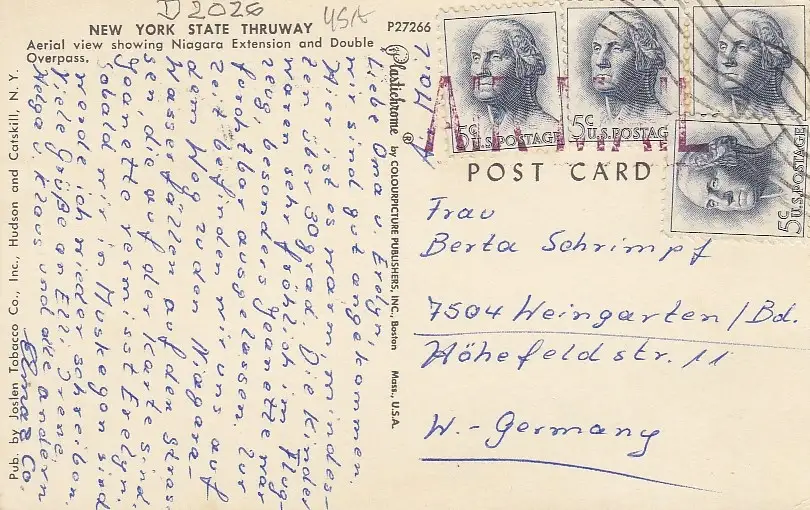 D 2026
USA
NEW YORK STATE THRUWAY
P27266
Aerial view showing Niagara Extension and Double
Overpass.
Pub. by Joslen Tobacco Co., Inc., Hudson and Catskill, N. Y.
Plastichrome ® by COLOURPICTURE PUBLISHERS, INC., Boston Mass., U.S.A.
Liebe Oma u. Evelyn,
wir sind gut angekommen.
Hier ist es warm, mindes-
ten über 30 grad. Die Kinder
waren sehr fröhlich im Flug-
zeug, besonders Jeanette war
furchtbar ausgelassen. Zur
Zeit befinden wir uns auf
dem Weg zu den Niagara-
Wasserfällen auf den Stras-
sen, die auf der Karte sind,
Jeanette vermisst Evelyn.
Sobald wir in Muskegon sind
werde ich wieder schreiben.
Viele Grüße an Elli, Irene,
Helga u. Klaus und alle andern
POST CARD
5c U.S. POSTAGE
5c U.S. POSTAG
5c U.S. POSTAGE
Frau
Berta Schrimpf
7504 Weingarten/Bd.
Höhefeldstr. 11
W.-Germany